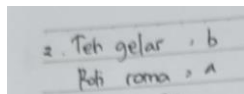 2. Teh gelar, b
Roti roma, a